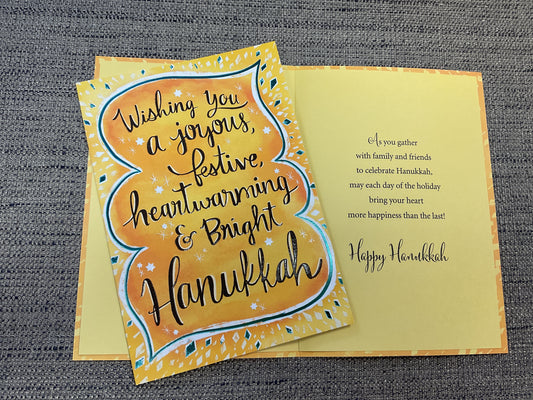 Wishing You
a joyous,
festive,
heartwarming
& Bright
Hanukkah
As you gather
with family and friends
to celebrate Hanukkah,
may each day of the holiday
bring your heart
more happiness than the last!
Happy Hanukkah